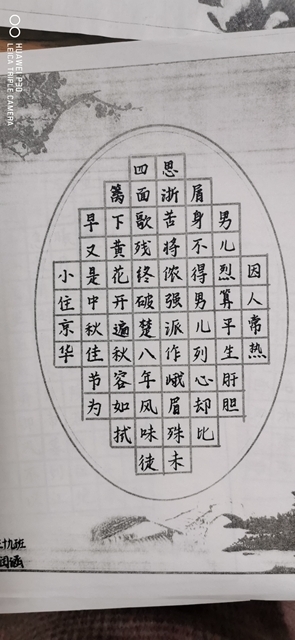 小住京华
早又是中秋佳节为
篱下黄花开遍秋容如拭
四面歌残终破楚八年风味徒
思浙苦将侬强派作峨眉殊未
屑身不得男儿列心却比
男儿烈算平生肝胆
因人常热
九班
涵
HUAWEI P30
LEICA TRIPLE CAMERA